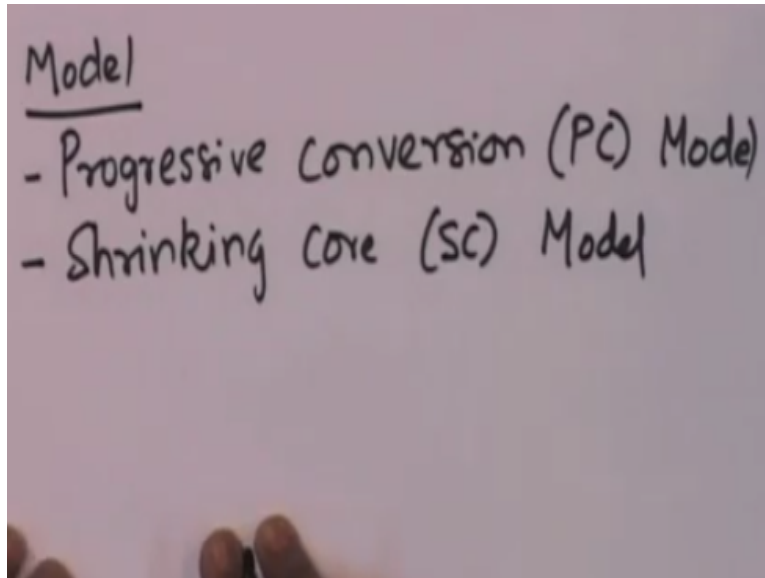 Model
- Progressive conversion (PC) Model
- Shrinking core (SC) Model